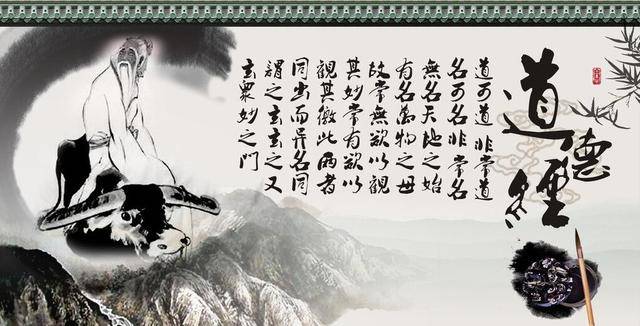 道德經
道可道 非常道
名可名 非常名
無名天地之始
有名萬物之母
故常無欲以觀
其妙常有欲以
觀其徼此兩者
同出而異名同
謂之玄玄之又
玄眾妙之門